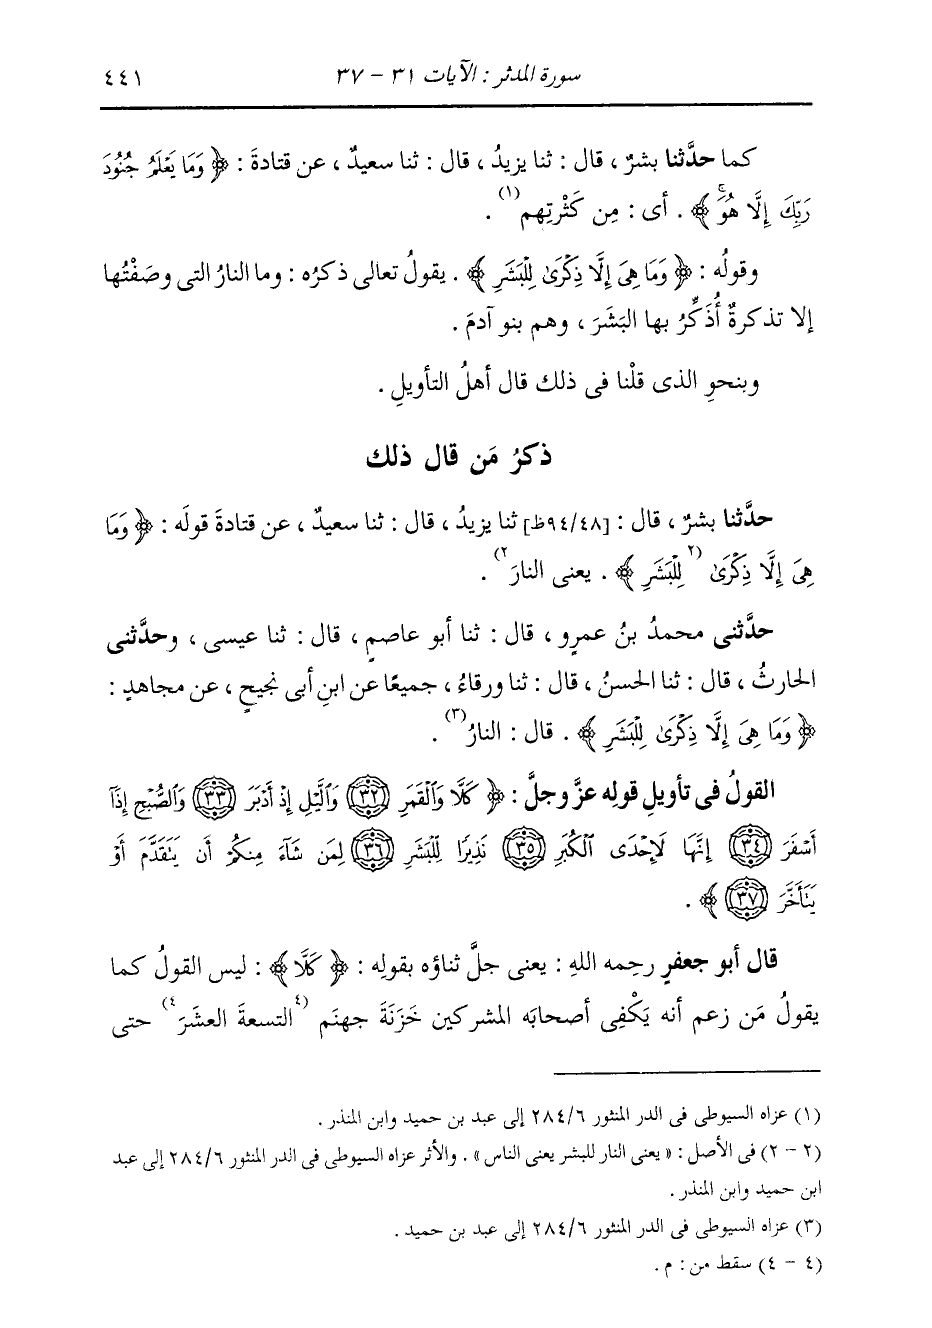 سورة المدثر : الآيات ٣١ - ٣٧ ٤٤١
كما حدَّثنا بشرٌ ، قال : ثنا يزيدُ ، قال : ثنا سعيدٌ ، عن قتادةَ : ﴿ وَمَا يَعْلَمُ جُنُودَ
رَبِّكَ إِلَّا هُوَۚ ﴾ . أى : مِن كَثْرتِهم(١) .
وقولُه : ﴿ وَمَا هِىَ إِلَّا ذِكْرَىٰ لِلْبَشَرِ ﴾ . يقولُ تعالى ذكرُه : وما النارُ التى وصَفْتُها
إلا تذكرةٌ أُذَكِّرُ بها البَشَرَ ، وهم بنو آدمَ .
وبنحوِ الذى قلْنا فى ذلك قال أهلُ التأويلِ .
ذكرُ مَن قال ذلك
حدَّثنا بشرٌ ، قال : [٩٤/٤٨ظ] ثنا يزيدُ ، قال : ثنا سعيدٌ ، عن قتادةَ قولَه : ﴿ وَمَا
هِىَ إِلَّا ذِكْرَىٰ (٢ لِلْبَشَرِ ﴾ . يعنى النارَ ٢) .
حدَّثنى محمدُ بنُ عمرٍو ، قال : ثنا أبو عاصمٍ ، قال : ثنا عيسى ، وحدَّثنى
الحارثُ ، قال : ثنا الحسنُ ، قال : ثنا ورقاءُ ، جميعًا عن ابنِ أبى نجيحٍ ، عن مجاهدٍ :
﴿ وَمَا هِىَ إِلَّا ذِكْرَىٰ لِلْبَشَرِ ﴾ . قال : النارُ(٣) .
القولُ فى تأويلِ قوله عزَّ وجلَّ : ﴿ كَلَّا وَٱلْقَمَرِ ٣٢ وَٱلَّيْلِ إِذْ أَدْبَرَ ٣٣ وَٱلصُّبْحِ إِذَآ
أَسْفَرَ ٣٤ إِنَّهَا لَإِحْدَى ٱلْكُبَرِ ٣٥ نَذِيرًا لِّلْبَشَرِ ٣٦ لِمَن شَآءَ مِنكُمْ أَن يَتَقَدَّمَ أَوْ
يَتَأَخَّرَ ٣٧ ﴾ .
قال أبو جعفرٍ رحِمه اللهِ : يعنى جلَّ ثناؤه بقولِه : ﴿ كَلَّا ﴾ : ليس القولُ كما
يقولُ مَن زعم أنه يَكْفِى أصحابَه المشركين خَزَنَةَ جهنمَ (٤ التسعةَ العشَرَ ٤) حتى
(١) عزاه السيوطى فى الدر المنثور ٢٨٤/٦ إلى عبد بن حميد وابن المنذر .
(٢ - ٢) فى الأصل : « يعنى النار للبشر يعنى الناس » . والأثر عزاه السيوطى فى الدر المنثور ٢٨٤/٦ إلى عبد
ابن حميد وابن المنذر .
(٣) عزاه السيوطى فى الدر المنثور ٢٨٤/٦ إلى عبد بن حميد .
(٤ - ٤) سقط من : م .